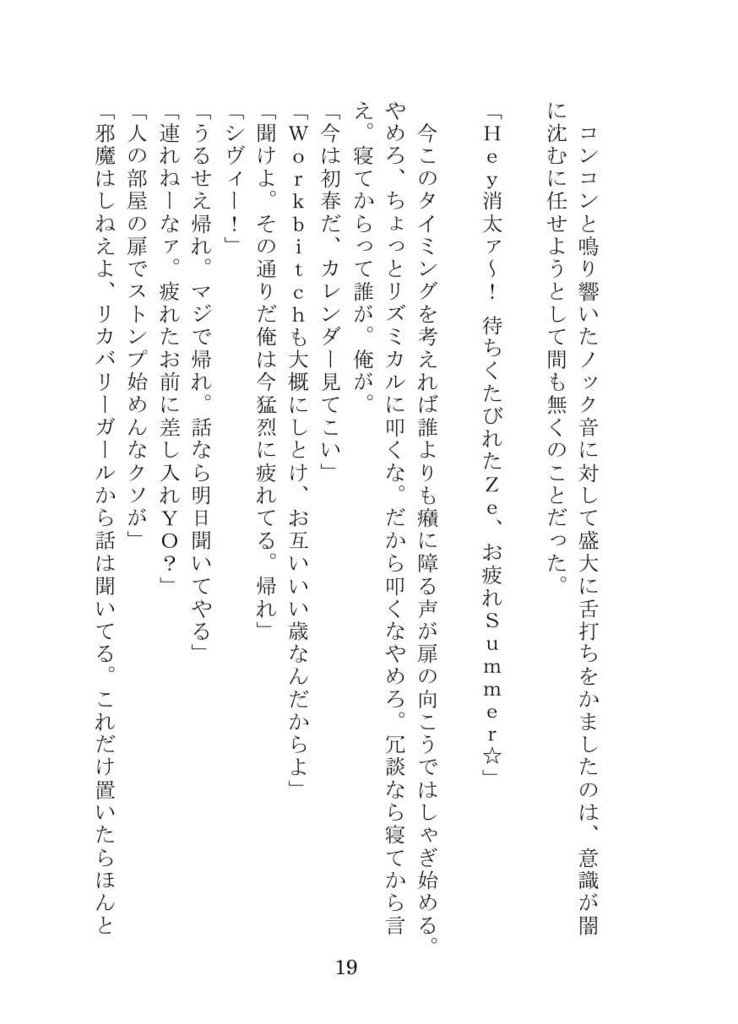 コンコンと鳴り響いたノック音に対して盛大に舌打ちをかましたのは、意識が闇
に沈むに任せようとして間も無くのことだった。
「Hey消太ァ～！　待ちくたびれたZe、お疲れSummer☆」
今このタイミングを考えれば誰よりも癪に障る声が扉の向こうではしゃぎ始める。
やめろ、ちょっとリズミカルに叩くな。だから叩くなやめろ。冗談なら寝てから言
え。寝てからって誰が。俺が。
「今は初春だ、カレンダー見てこい」
「Workbitchも大概にしとけ、お互いいい歳なんだからよ」
「聞けよ。その通りだ俺は今猛烈に疲れてる。帰れ」
「シヴィー！」
「うるせえ帰れ。マジで帰れ。話なら明日聞いてやる」
「連れねーなァ。疲れたお前に差し入れYO？」
「人の部屋の扉でストンプ始めんなクソが」
「邪魔はしねえよ、リカバリーガールから話は聞いてる。これだけ置いたらほんと
19